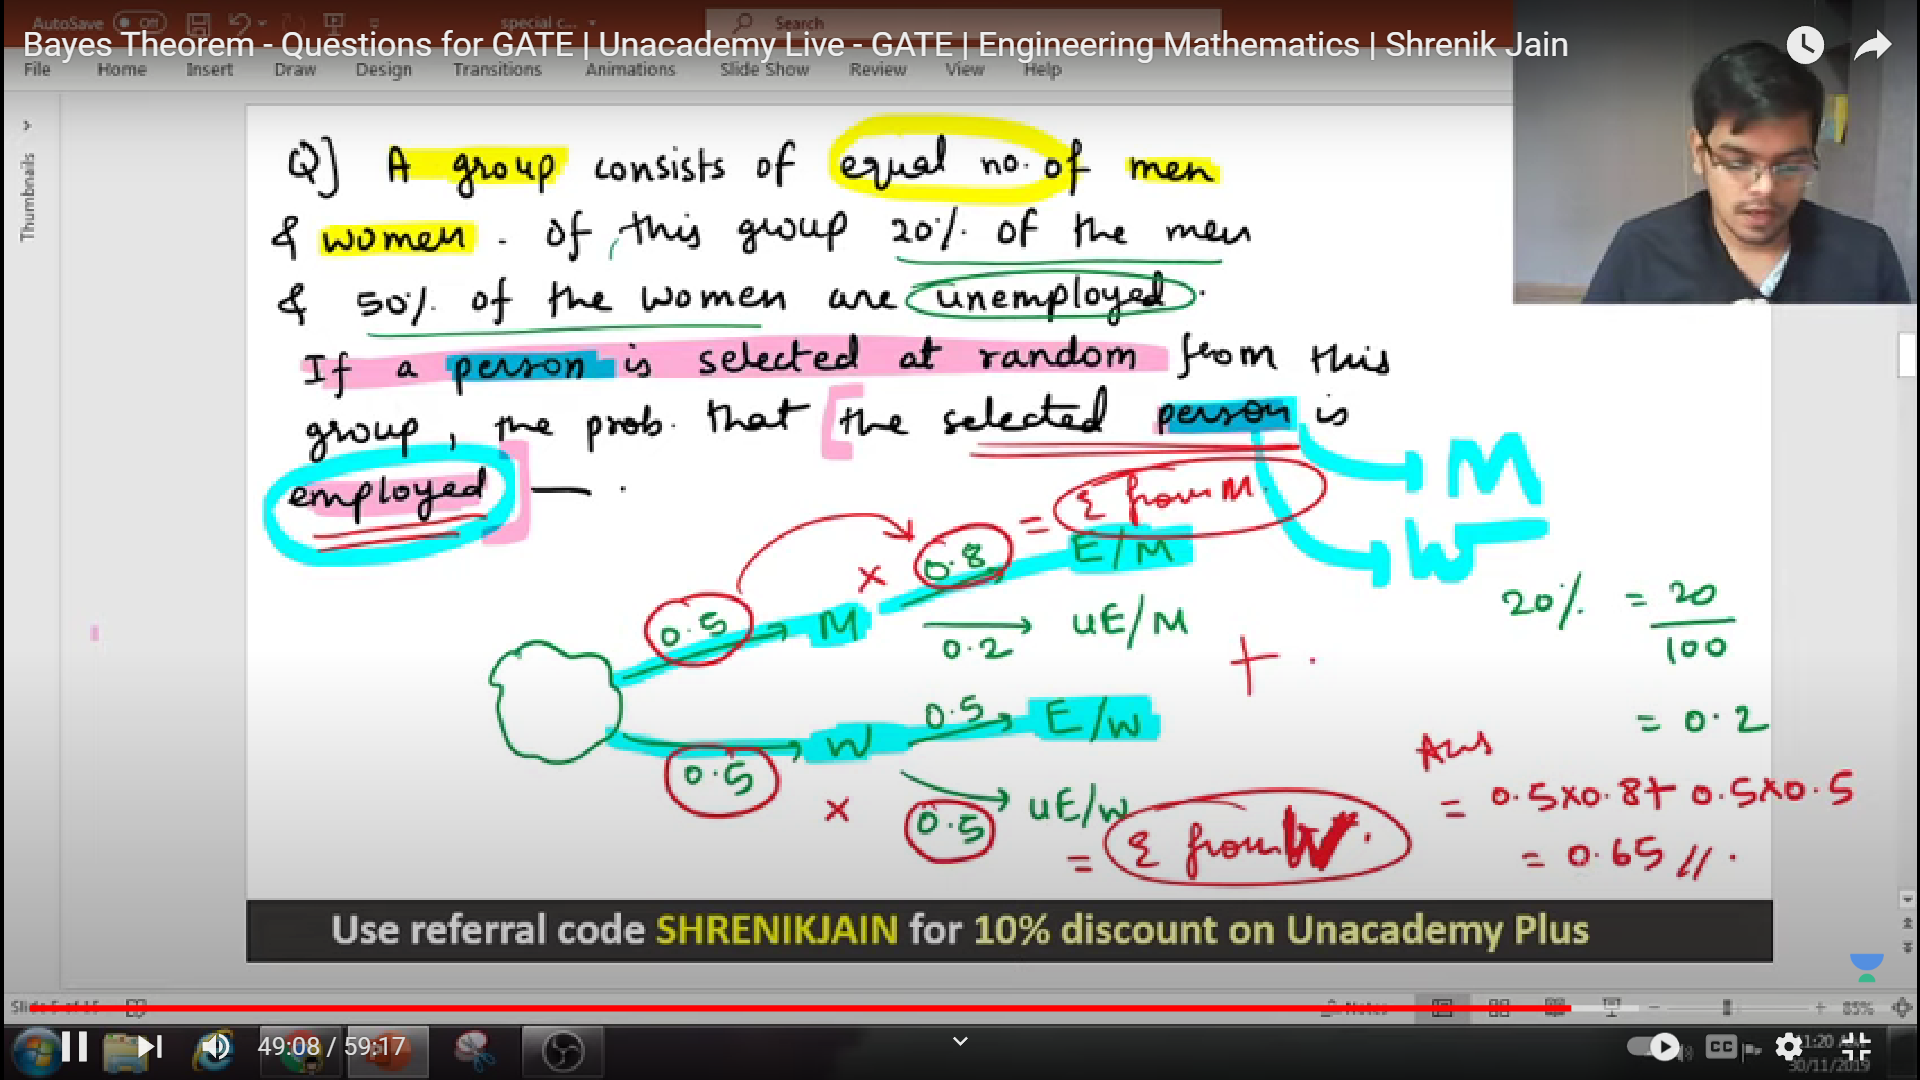 AutoSave Off special c... Search
Bayes Theorem - Questions for GATE | Unacademy Live - GATE | Engineering Mathematics | Shrenik Jain
File Home Insert Draw Design Transitions Animations Slide Show Review View Help
Thumbnails
Q] A group consists of equal no. of men
& women. Of this group 20% of the men
& 50% of the women are unemployed.
If a person is selected at random from this
group, the prob. that [the selected person is
employed] — .
M
W
0.5 → M × 0.8 E/M = E from M.
0.2 UE/M
+
0.5 → W 0.5 E/W
× 0.5 UE/W = E from W.
20% = 20/100
= 0.2
Ans
= 0.5×0.8+ 0.5×0.5
= 0.65 //.
Use referral code SHRENIKJAIN for 10% discount on Unacademy Plus
Notes 85%
49:08 / 59:17
CC
30/11/2019